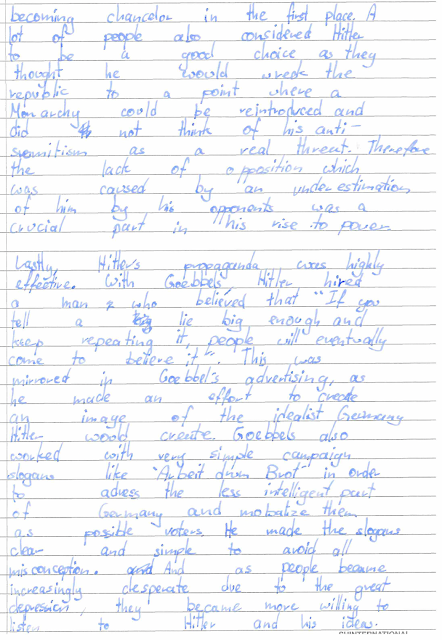 becoming chancelor in the first place. A
lot of people also considered Hitler
to be a good choice as they
thought he would wreck the
republic to a point where a
Monarchy could be reintroduced and
did not think of his anti-
symitism as a real threat. Therefore
the lack of opposition which
was caused by an underestimation
of him by his opponents was a
crucial part in his rise to power.
Lastly, Hitler's propaganda was highly
effective. With Goebbels, Hitler hired
a man who believed that "If you
tell a lie big enough and
keep repeating it, people will eventually
come to believe it". This was
mirrored in Goebbel's advertising, as
he made an effort to create
an image of the idealist Germany
Hitler would create. Goebbels also
worked with very simple campaign
slogans like "Arbeit Brot" in order
to adress the less intelligent part
of Germany and mobalize them
as possible voters. He made the slogans
clear and simple to avoid all
misconception. And as people became
increasingly desperate due to the great
depression, they became more willing to
listen to Hitler and his ideas.